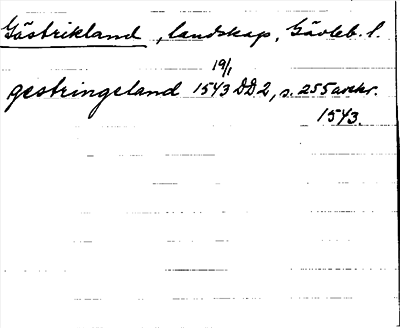 Gästrikland, landskap, Gävleb. l.
19/1
gestringeland 1543 DD2, s. 255 avskr.
1543.